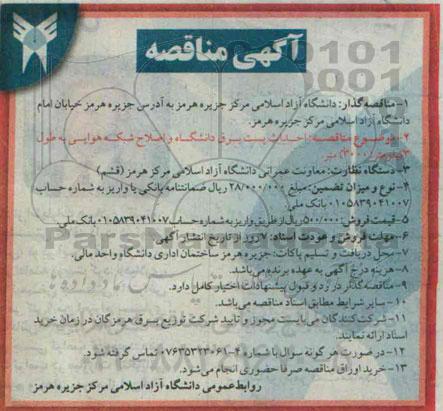 آگهی مناقصه
۱-مناقصه‌گذار: دانشگاه آزاد اسلامی مرکز جزیره هرمز به آدرس جزیره هرمز خیابان امام
دانشگاه آزاد اسلامی مرکز جزیره هرمز.
۲-موضوع مناقصه: احداث پست برق دانشگاه و اصلاح شبکه هوایی به طول
۳کیلومتر(۳۰۰۰) متر
۳-دستگاه نظارت: معاونت عمرانی دانشگاه آزاد اسلامی مرکز هرمز (قشم)
۴-نوع و میزان تضمین: مبلغ ۲۸/۰۰۰/۰۰۰ ریال ضمانتنامه بانکی یا واریز به شماره حساب
۰۱۰۵۸۳۹۰۴۱۰۰۷ بانک ملی
۵-قیمت فروش: ۵۰۰/۰۰۰ ریال از طریق واریز به شماره حساب ۰۱۰۵۸۳۹۰۴۱۰۰۷ بانک ملی.
۶-مهلت فروش و عودت اسناد: ۷ روز از تاریخ انتشار آگهی
۷-محل دریافت و تسلیم پاکات: جزیره هرمز ساختمان اداری دانشگاه واحد مالی.
۸-هزینه درج آگهی به عهده برنده می‌باشد.
۹-مناقصه‌گذار در رد و قبول پیشنهادات اختیار کامل دارد.
۱۰-سایر شرایط مطابق اسناد مناقصه می‌باشد.
۱۱-شرکت‌کنندگان می‌بایست مجوز و تایید شرکت توزیع برق هرمزگان در زمان خرید
اسناد ارائه نمایند.
۱۲-در صورت هر گونه سوال با شماره ۴-۰۷۶۳۵۳۲۳۰۶۱ تماس گرفته شود.
۱۳-خرید اوراق مناقصه صرفا حضوری انجام می‌شود.
روابط عمومی دانشگاه آزاد اسلامی مرکز جزیره هرمز